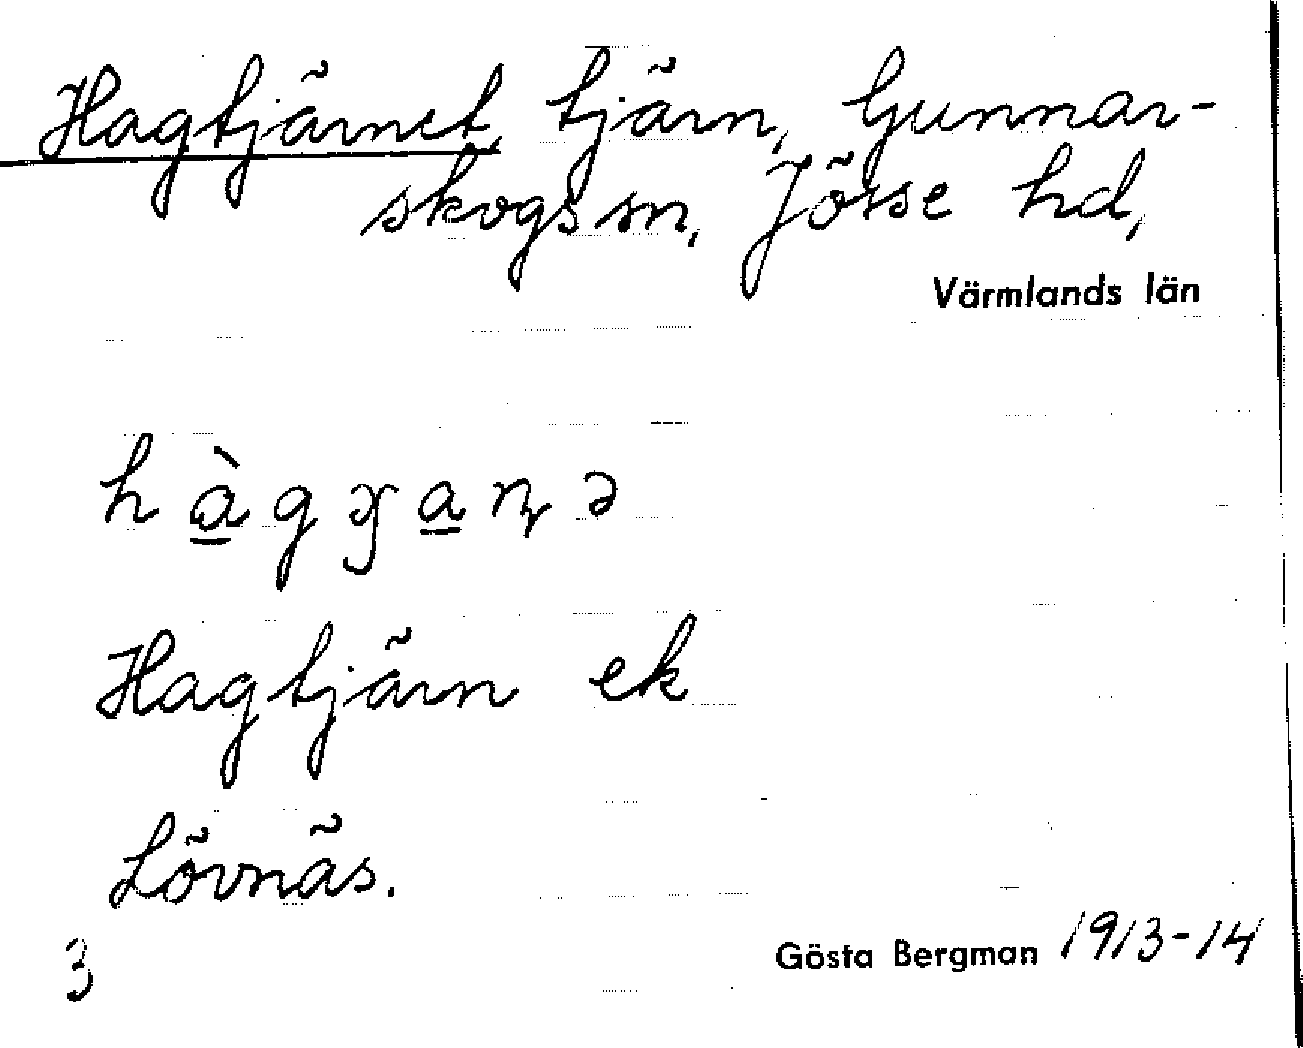 Hagtjärnet, tjärn, Gunnar-
skogs sn, Jösse hd,
Värmlands län
hàgɣaɳə
Hagtjärn ek
Lövnäs.
3 Gösta Bergman 1913-14